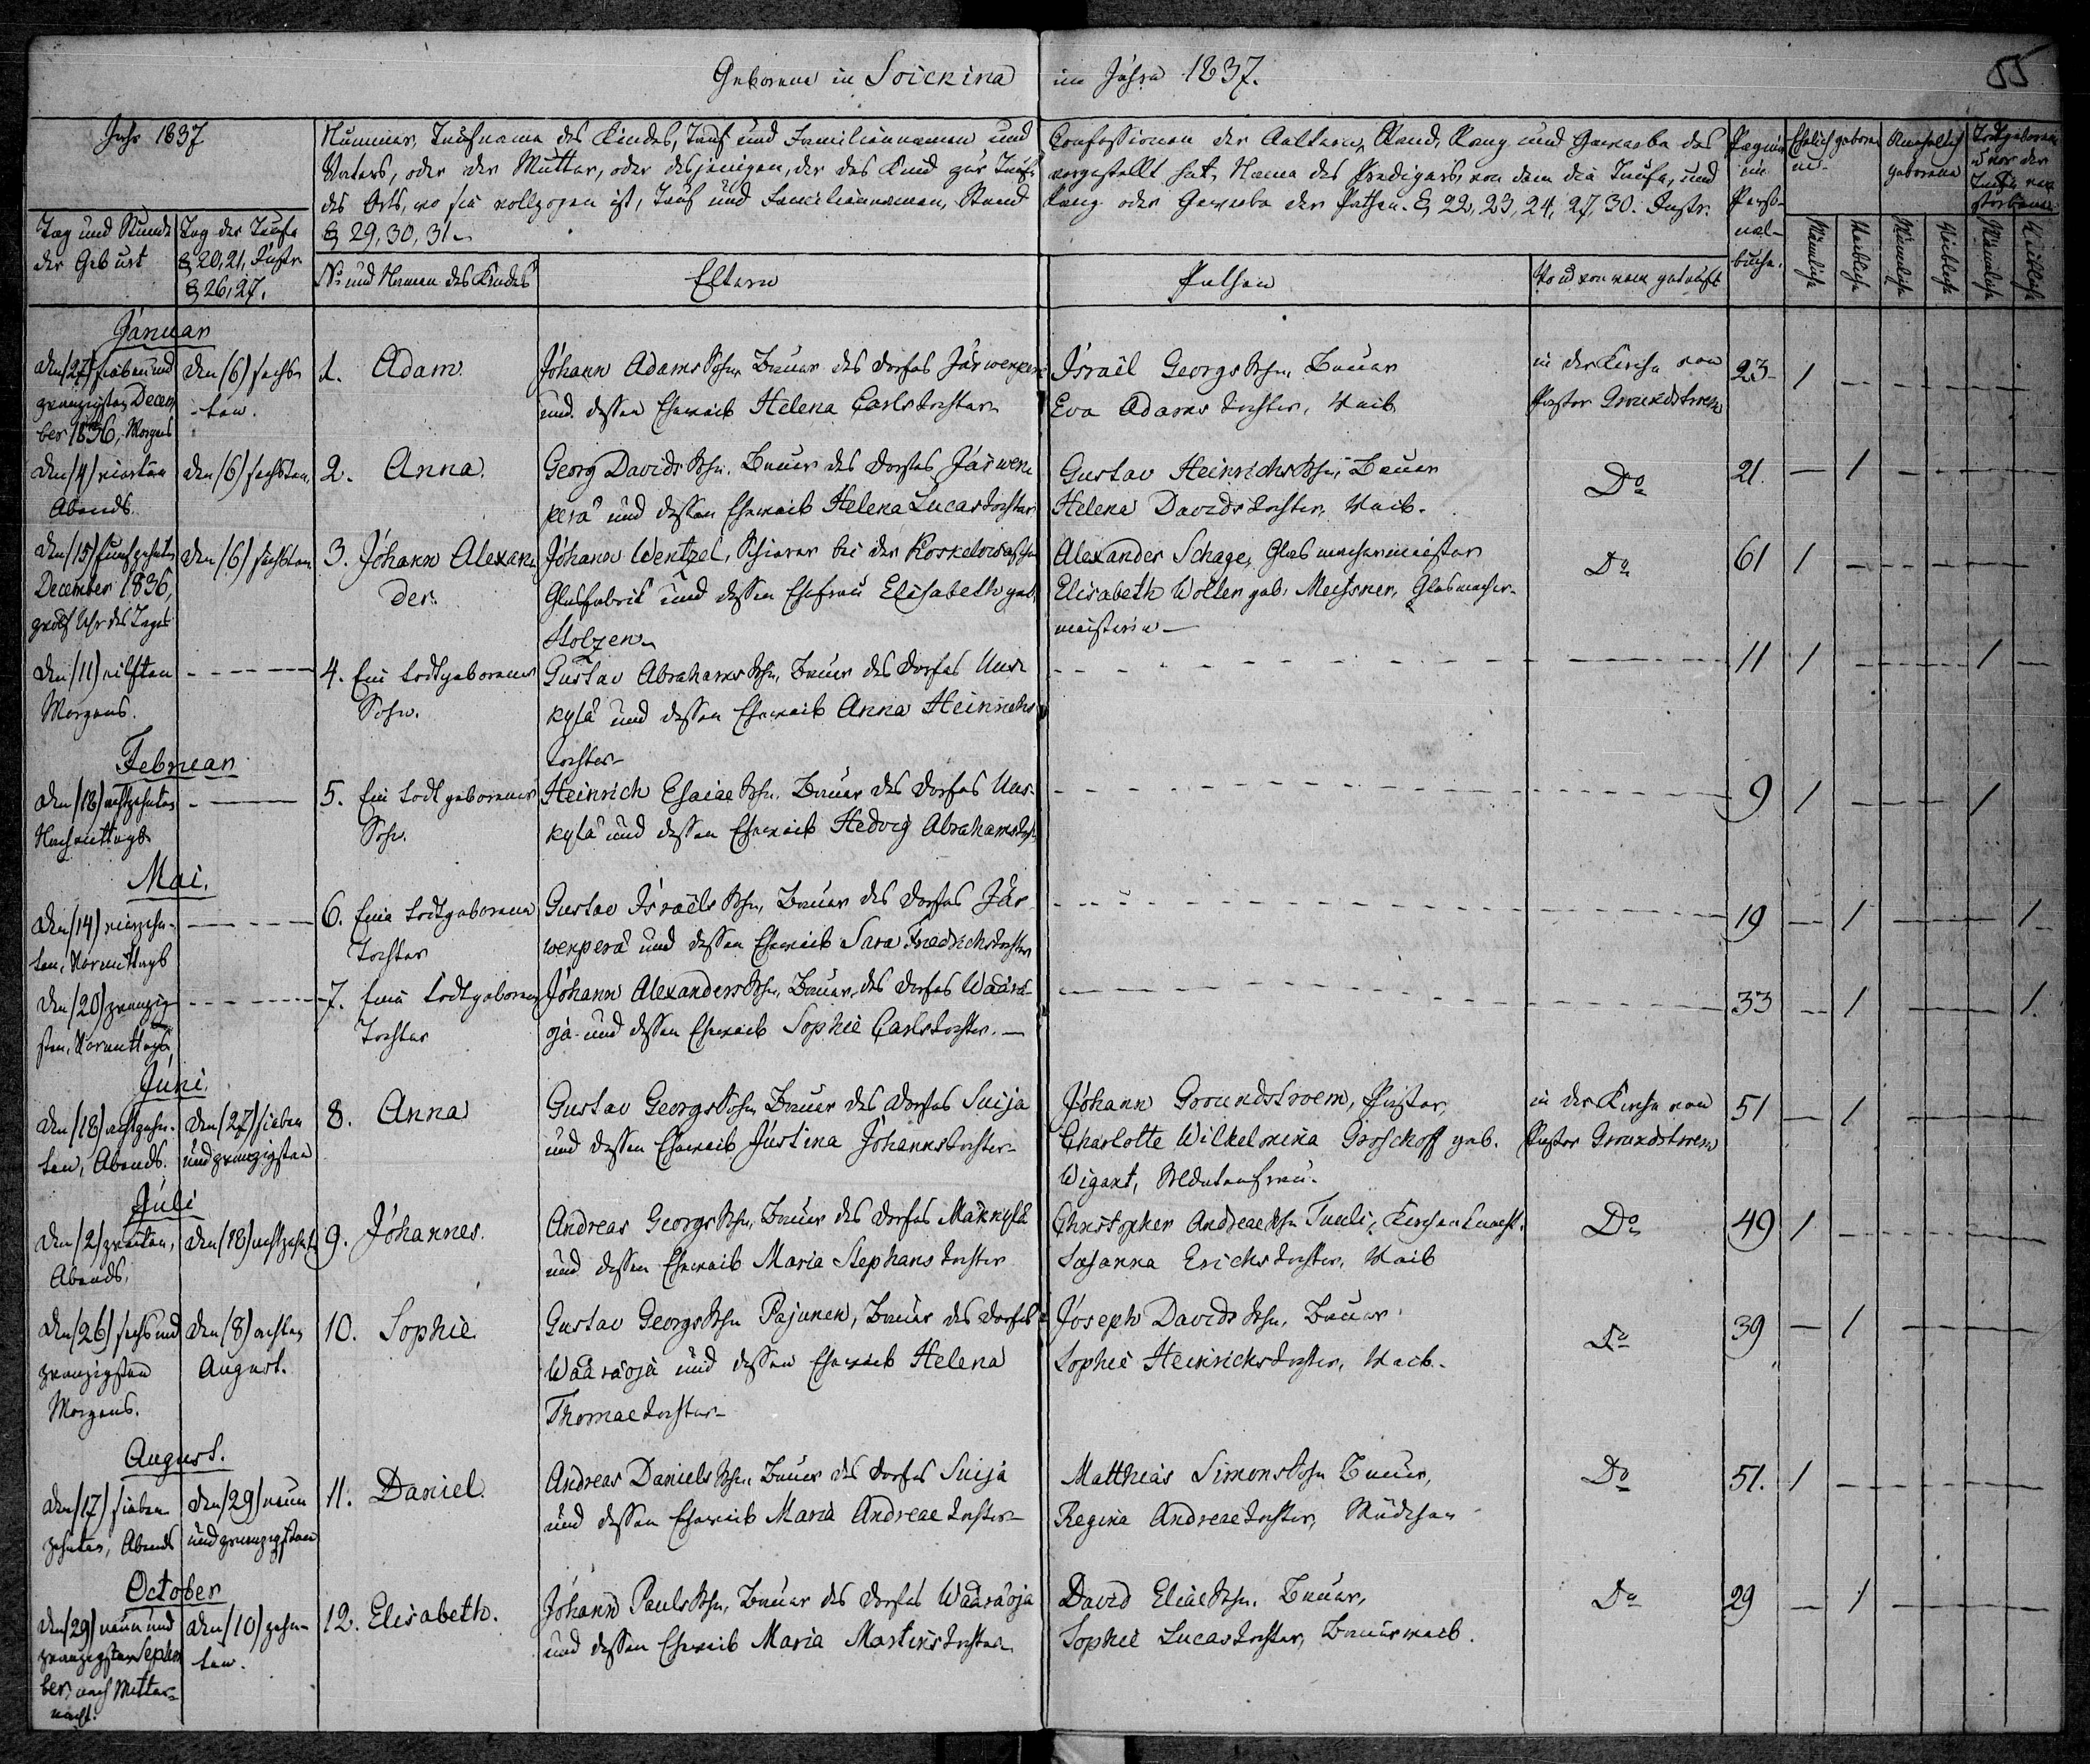 Geborene in Soickina im Jahre 1837.
55
Jahr 1837
Nummer, Taufname des Kindes, Tauf und Familiennamen und
Confessionen der Aeltern, Stand, Rang und Gewerbe des
Vaters, oder der Mutter, oder desjenigen, der das Kind zur Taufe
vorgestellt hat, Name des Predigers, von dem die Taufe, und
des Orts, wo sie vollzogen ist, Tauf und Familiennamen, Stand
Rang oder Gewerbe der Pathen. § 22, 23, 24, 27, 30. Instr.
§ 29, 30, 31.
Pagina
im
Perso-
nal-
buche.
Ehelich geborene
Unehelich
geborene
Todtgeborene
u vor der
Taufe ver
storbene
Tag und Stunde
der Geburt
Tag der Taufe
§ 20, 21, Instr.
§ 26, 27.
No und Namen des Kindes
Eltern
Pathen
Wo u von wem getauft
Männliche
Weibliche
Männliche
Weibliche
Männliche
Weibliche
Januar
den (27) sieben und
zwanzigsten Decem
ber 1836, Morgens
den (6) sechs-
ten.
1. Adam.
Johann Adams Sohn, Bauer des Dorfes Järwenpere
und dessen Eheweib Helena Carlstochter
Israël Georgs Sohn, Bauer
Eva Adams tochter, Weib
in der Kirche von
Pastor Groundstroem
23 1
den (4) vierten
Abends.
den (6) sechsten.
2. Anna.
Georg Davids Sohn, Bauer des Dorfes Järwen
perä und dessen Eheweib Helena Lucastochter
Gustav Heinrichs Sohn, Bauer
Helena Davids tochter, Weib.
Do
21. 1
den (15) funfzehnten
December 1836,
zwölf Uhr des Tages
den (6) sechsten
3. Johann Alexan
der.
Johann Wentzel, Schürer bei der Koskelowaschen
Glasfabrik und dessen Ehefrau Elisabeth geb.
Holzen
Alexander Schage, Glasmachermeister
Elisabeth Wolter geb. Meissner, Glasmacher-
meisterin
Do
61 1
den (11) eilften
Morgens.
4. Ein todtgeborener
Sohn.
Gustav Abrahams Sohn, Bauer des Dorfes Uus
kylä und dessen Eheweib Anna Heinrichs
tochter
11 1 1
Februar
den (18) achtzehnten
Nachmittags
5. Ein todtgeborener
Sohn.
Heinrich Esaiae Sohn, Bauer des Dorfes Uus-
kylä und dessen Eheweib Hedvig Abrahamstoch
9 1 1
Mai.
den (14) vierzehn-
ten, Vormittags
6. Eine todtgeborene
Tochter
Gustav Israëls Sohn, Bauer des Dorfes Jär
wenperä und dessen Eheweib Sara Fredrichstochter
19 1 1
den (20) zwanzig
sten, Vormittags
7. Eine todtgeborene
Tochter
Johann Alexanders Sohn, Bauer des Dorfes Wäärä-
oja und dessen Eheweib Sophie Carlstochter.
33 1 1.
Juni.
den (18) achtzehn-
ten, Abends.
den (27) sieben
und zwanzigsten
8. Anna
Gustav Georgs Sohn, Bauer des Dorfes Suija
und dessen Eheweib Justina Johannstochter
Johann Groundstroem, Pastor,
Charlotte Wilhelmina Groschoff geb.
Wigant, Soldatenfrau.
in der Kirche von
Pastor Groundstroem
51 1
Juli
den (2) zweiten,
Abends,
den (18) achtzehnt
9. Johannes.
Andreas Georgs Sohn, Bauer des Dorfes Makkylä
und dessen Eheweib Maria Stephans tochter
Christopher Andreae Sohn Tuuli, Kirchenknecht.
Susanna Erichs tochter, Weib
Do
49 1
den (26) sechs und
zwanzigsten
Morgens.
den (8) achten
August.
10. Sophie
Gustav Georgs Sohn Pajunen, Bauer des Dorfes
Wääräoja und dessen Eheweib Helena
Thomae tochter
Joseph Davids Sohn, Bauer
Sophie Heinrichstochter, Weib.
Do
39 1
August.
den (17) sieben
zehnten, Abends
den (29) neun
und zwanzigsten
11. Daniel.
Andreas Daniels Sohn, Bauer des Dorfes Suija
und dessen Eheweib Maria Andreae tochter
Matthias Simons Sohn Bauer,
Regina Andreae tochter, Mädchen
Do
51. 1
October
den (29) neun und
zwanzigsten Septem
ber, nach Mitter-
nacht.
den (10) zehn-
ten.
12. Elisabeth.
Johann Pauls Sohn, Bauer des Dorfes Wääräoja
und dessen Eheweib Maria Martinstochter
David Eliae Sohn, Bauer,
Sophie Lucastochter, Bauerweib.
Do
29 1